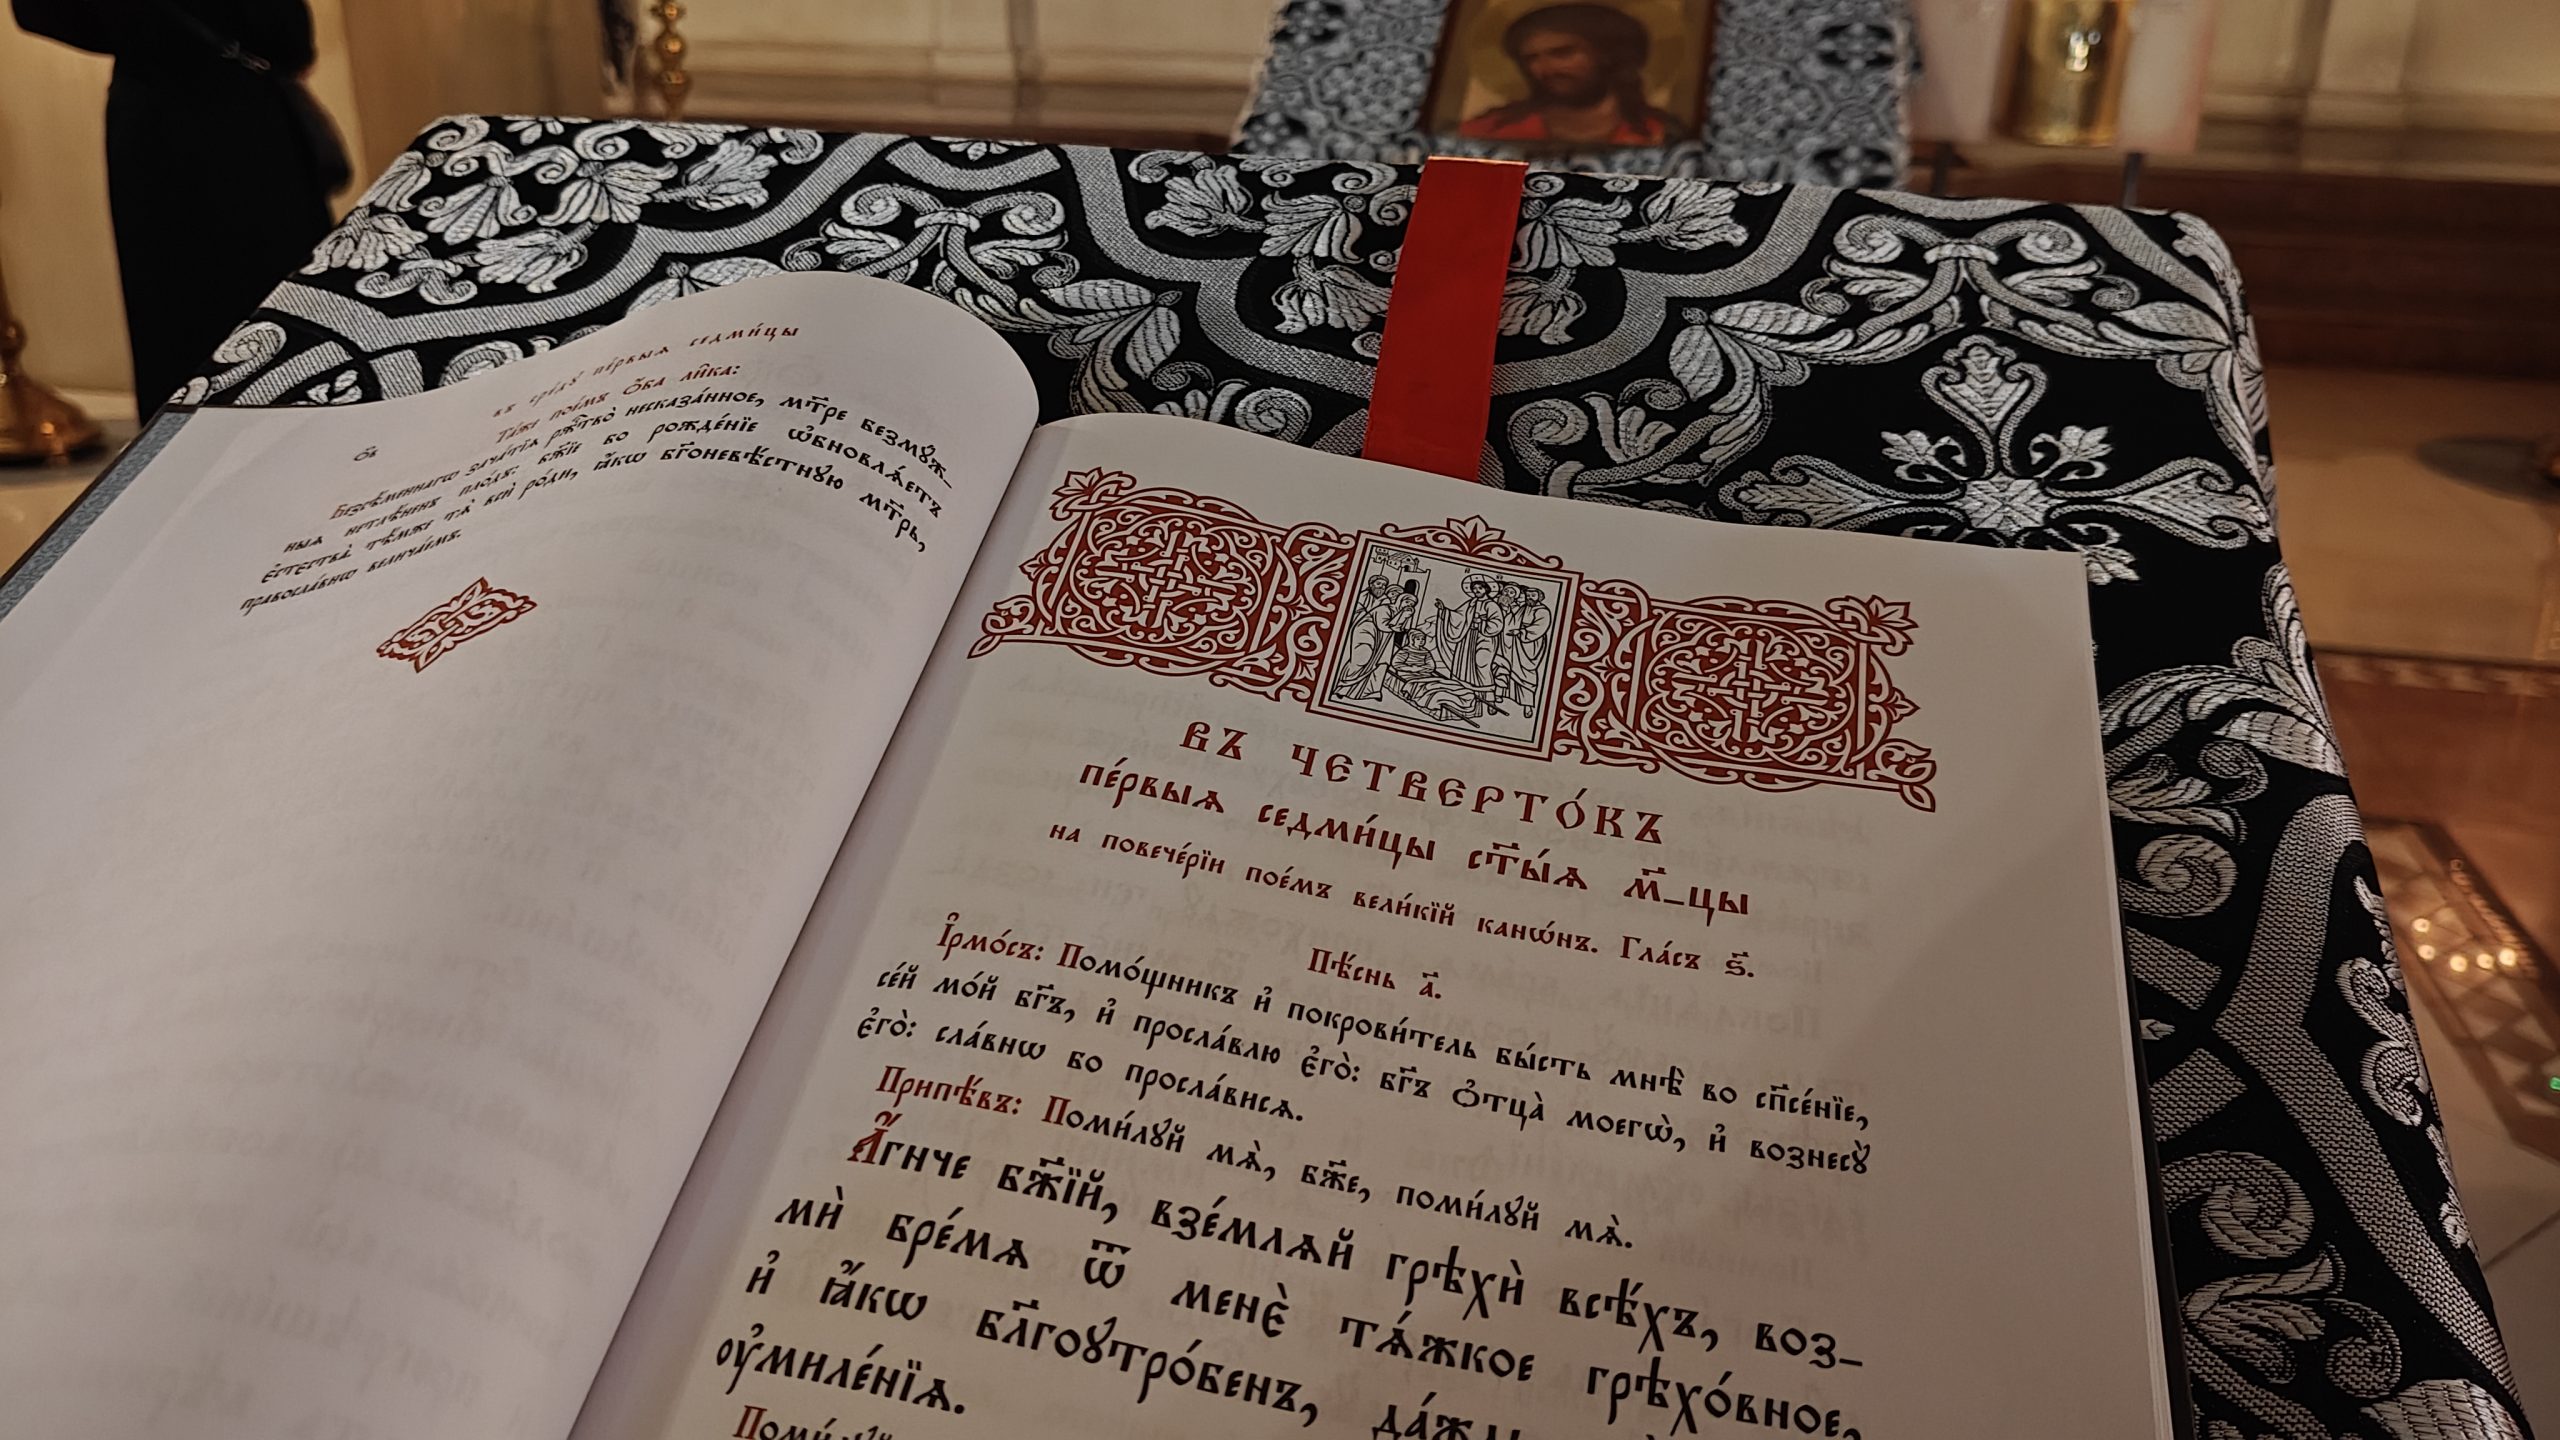 въ сре́дꙋ пе́рвыѧ седми́цы
ѻ҃в
Та́же пое́мъ ѻ҆́ба ли̑ка:
Безсѣ́меннагѡ зача́тїѧ ржⷭ҇тво̀ несказа́нное, мт҃ре безмꙋ́ж-
ныѧ нетлѣ́ненъ пло́дъ: бж҃їе бо рожде́нїе ѡ҆бновлѧ́етъ
є҆стєства̀. тѣ́мже тѧ̀ всѝ ро́ди, ꙗ҆́кѡ бг҃оневѣ́стнꙋю мт҃рь,
правосла́внѡ велича́емъ.
ВЪ ЧЕТВЕРТО́КЪ
пе́рвыѧ седми́цы ст҃ы́ѧ м҃-цы
на повече́рїи пое́мъ вели́кїй канѡ́нъ. Гла́съ ѕ҃.
Пѣ́снь а҃.
І҆рмо́съ: Помо́щникъ и҆ покрови́тель бы́сть мнѣ̀ во сп҃се́нїе,
се́й мо́й бг҃ъ, и҆ просла́влю є҆го̀: бг҃ъ ѻ҆тца̀ моегѡ̀, и҆ вознесꙋ̀
є҆го̀: сла́внѡ бо просла́висѧ.
Припѣ́въ: Поми́лꙋй мѧ̀, бж҃е, поми́лꙋй мѧ̀.
А҆́гнче бж҃їй, взе́млѧй грѣхѝ всѣ́хъ, воз-
мѝ бре́мѧ ѿ менє̀ тѧ́жкое грѣхо́вное,
и҆ ꙗ҆́кѡ бл҃гоꙋтро́бенъ, да́ждь
оу҆миле́нїѧ.
Поми́лꙋй